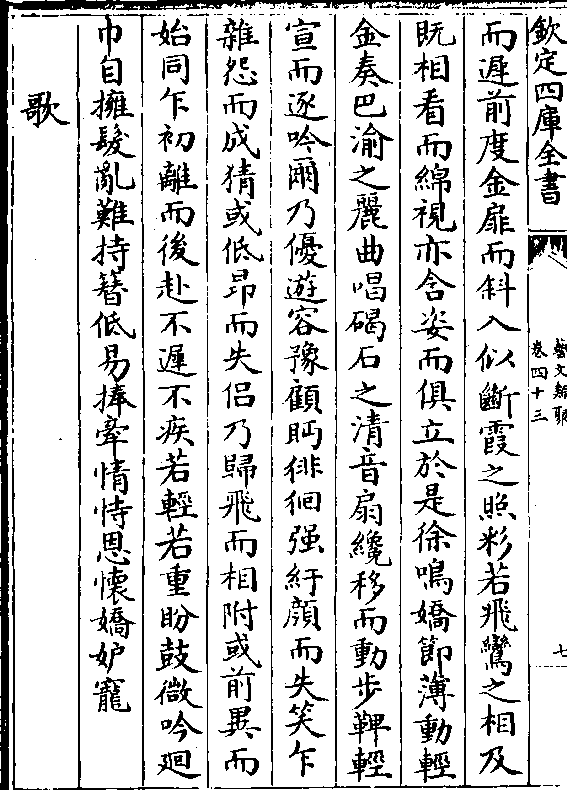 欽定四庫全書
藝文類聚
卷四十三
七
而遲前度金扉而斜入似斷霞之照彩若飛鸞之相及
既相看而綿視亦含姿而俱立於是徐鳴嬌節薄動輕
金奏巴渝之麗曲唱碣石之清音扇纔移而動步鞞輕
宣而逐吟爾乃優遊容豫顧眄徘徊强紆顔而失笑乍
雜怨而成猜或低昂而失侣乃歸飛而相附或前異而
始同乍初離而後赴不遲不疾若輕若重盼鼓微吟廻
巾自擁髮亂難持簪低易捧牽情恃恩懷嬌妒寵
歌